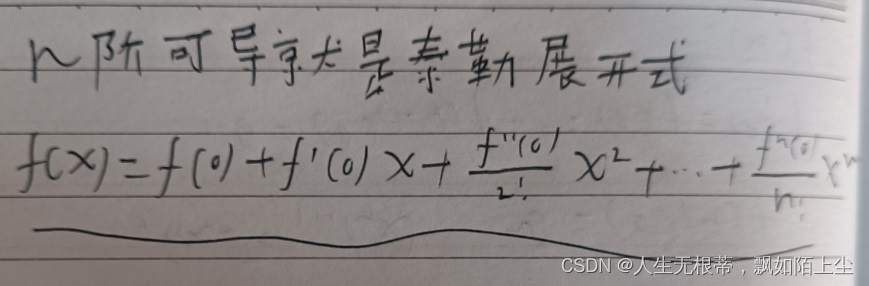 n阶可导就是泰勒展开式
f(x)=f(0)+f'(0)x+\frac{f''(0)}{2!}x^2+\cdots+\frac{f^n(0)}{n!}x^n
CSDN @人生无根蒂,飘如陌上尘